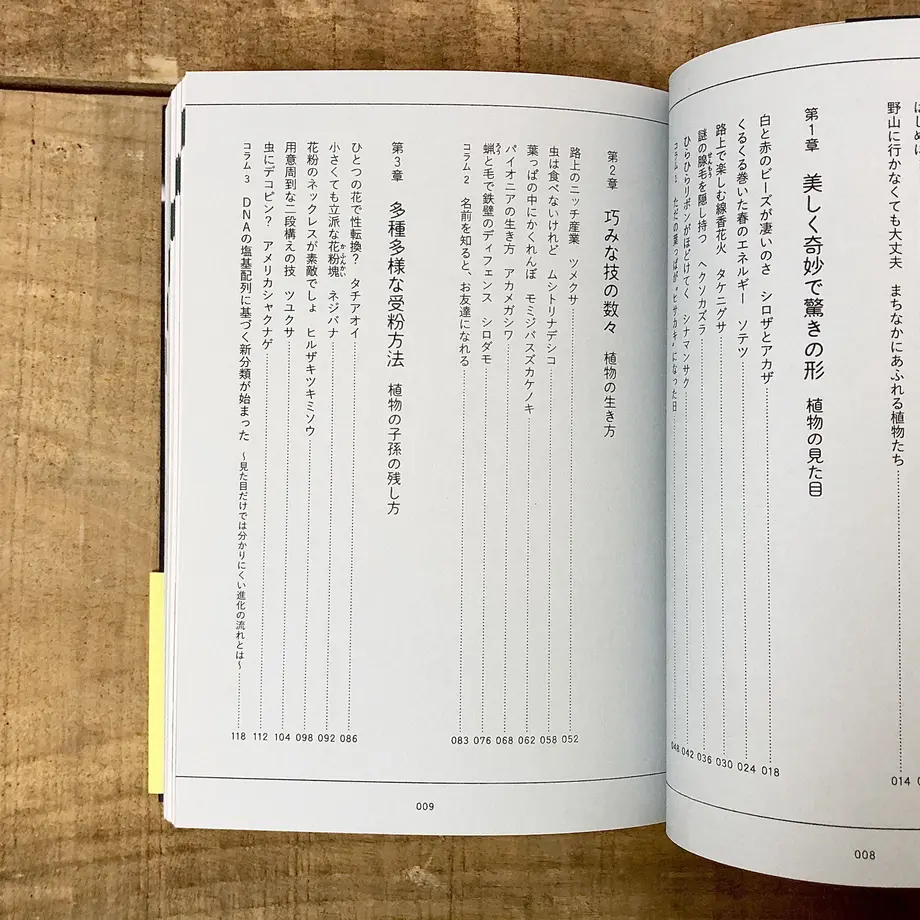 はじめに
野山に行かなくても大丈夫 まちなかにあふれる植物たち 014
第1章 美しく奇妙で驚きの形 植物の見た目
白と赤のビーズが凄いのさ シロザとアカザ 018
くるくる巻いた春のエネルギー ソテツ 024
路上で楽しむ線香花火 タケニグサ 030
謎の腺毛を隠し持つ ヘクソカズラ 036
ひらひらリボンがほどけてく シナマンサク 042
コラム1 ただの葉っぱが“ヒサカキ”になった日 048
008
第2章 巧みな技の数々 植物の生き方
路上のニッチ産業 ツメクサ 052
虫は食べないけれど ムシトリナデシコ 058
葉っぱの中にかくれんぼ モミジバスズカケノキ 062
パイオニアの生き方 アカメガシワ 068
蝋と毛で鉄壁のディフェンス シロダモ 076
コラム2 名前を知ると、お友達になれる 083
第3章 多種多様な受粉方法 植物の子孫の残し方
ひとつの花で性転換？ タチアオイ 086
小さくても立派な花粉塊 ネジバナ 092
花粉のネックレスが素敵でしょ ヒルザキツキミソウ 098
用意周到な二段構えの技 ツユクサ 104
虫にデコピン？ アメリカシャクナゲ 112
コラム3 DNAの塩基配列に基づく新分類が始まった ～見た目だけでは分かりにくい進化の流れとは～ 118
009